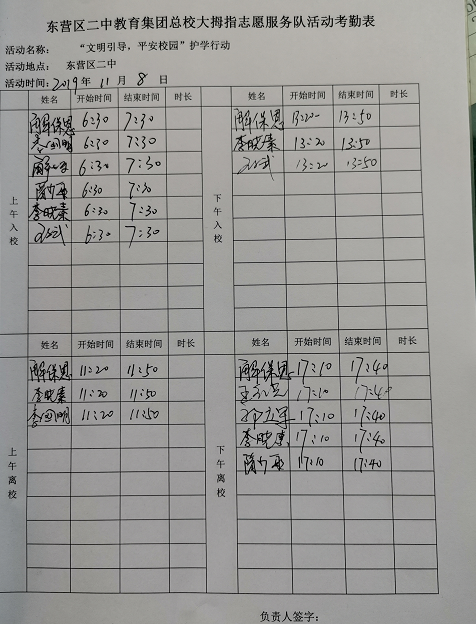 东营区二中教育集团总校大拇指志愿服务队活动考勤表
活动名称： “文明引导，平安校园”护学行动
活动地点： 东营区二中
活动时间：2019年 11 月 8 日
上午入校
姓名 开始时间 结束时间 时长
解保恩 6:30 7:30
李向明 6:30 7:30
6:30 7:30
6:30 7:30
李晓秦 6:30 7:30
6:30 7:30
下午入校
姓名 开始时间 结束时间 时长
解保恩 13:20 13:50
李晓秦 13:20 13:50
13:20 13:50
上午离校
姓名 开始时间 结束时间 时长
解保恩 11:20 11:50
李晓秦 11:20 11:50
李向明 11:20 11:50
下午离校
姓名 开始时间 结束时间 时长
解保恩 17:10 17:40
17:10 17:40
17:10 17:40
李晓秦 17:10 17:40
17:10 17:40
负责人签字：